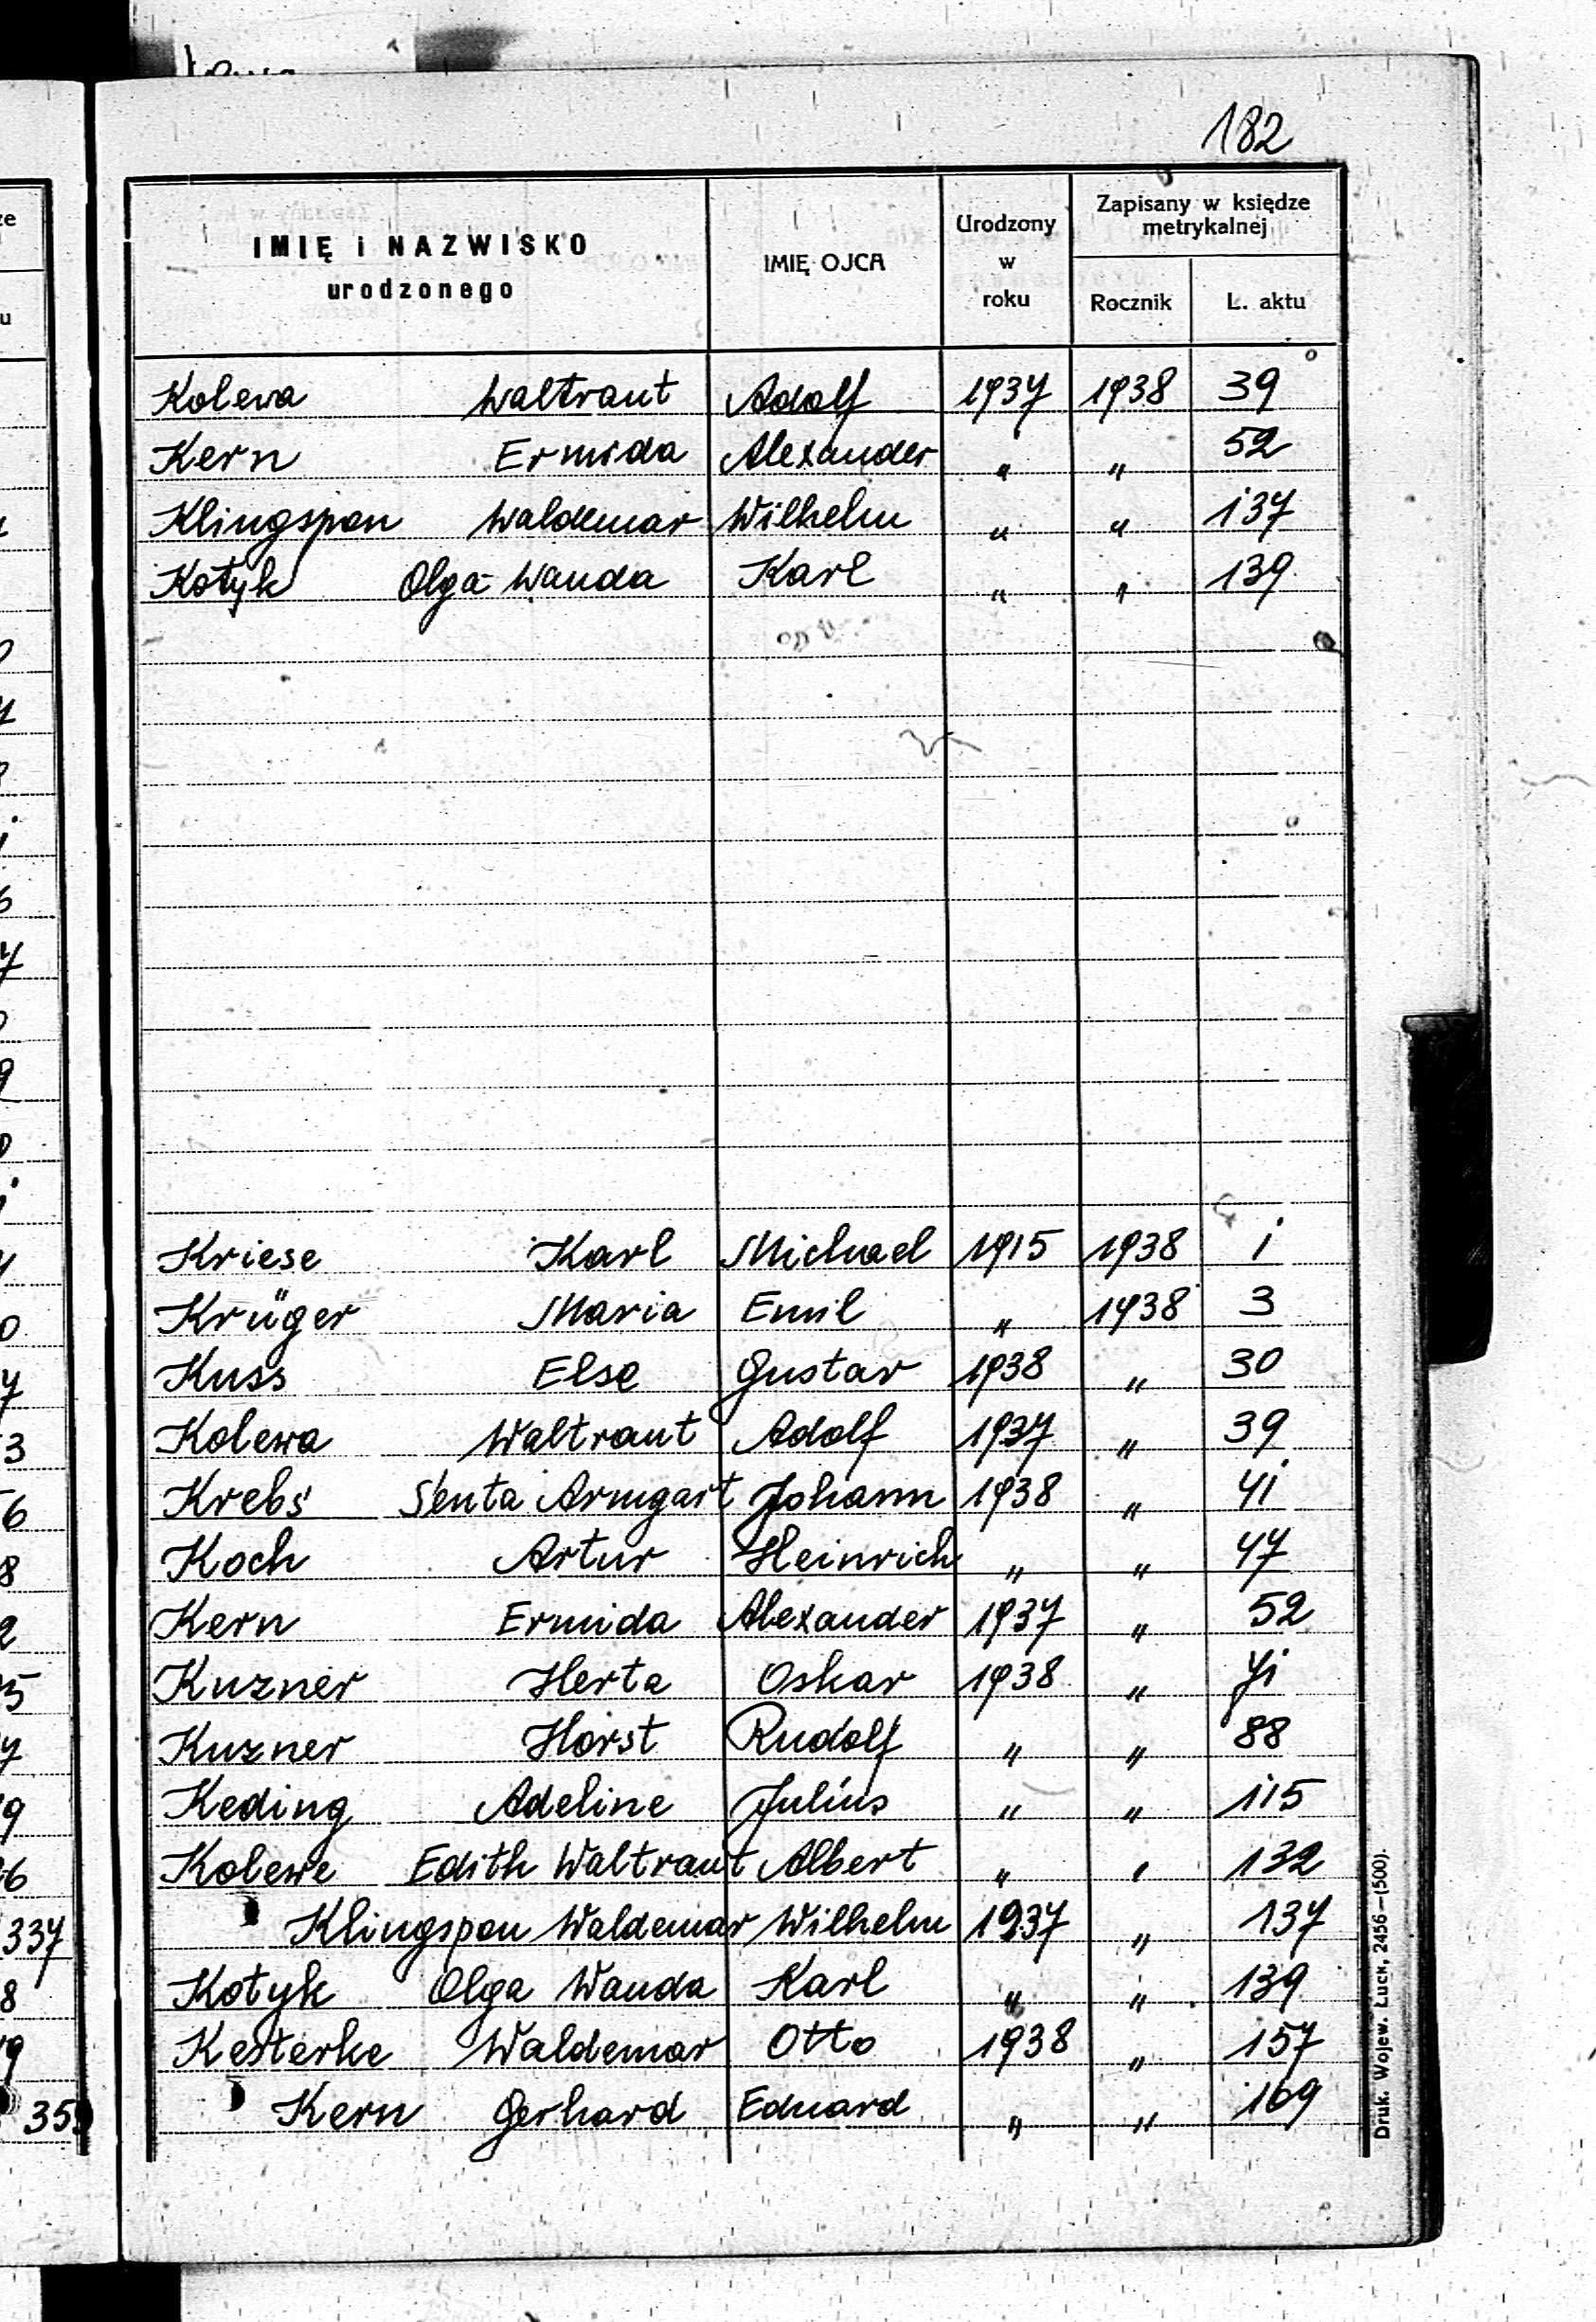 182
IMIĘ i NAZWISKO urodzonego IMIĘ OJCA Urodzony w roku Zapisany w księdze metrykalnej Rocznik L. aktu
Kolewa Waltraut Adolf 1937 1938 39
Kern Ermida Alexander " " 52
Klingspon Waldemar Wilhelm " " 137
Kotyk Olga Wanda Karl " " 139
Kriese Karl Michael 1915 1938 1
Krüger Maria Emil " 1938 3
Kuss Else Gustav 1938 " 30
Kolewa Waltraut Adolf 1937 " 39
Krebs Senta Armgart Johann 1938 " 41
Koch Artur Heinrich " " 47
Kern Ermida Alexander 1937 " 52
Kuzner Herta Oskar 1938 " 71
Kuzner Horst Rudolf " " 88
Keding Adeline Julius " " 115
Kolewe Edith Waltraut Albert " " 132
Klingspon Waldemar Wilhelm 1937 " 137
Kotyk Olga Wanda Karl " " 139
Kesterke Waldemar Otto 1938 " 157
Kern Gerhard Eduard " " 169
Druk. Wojew. Łuck, 2456—(500).
337